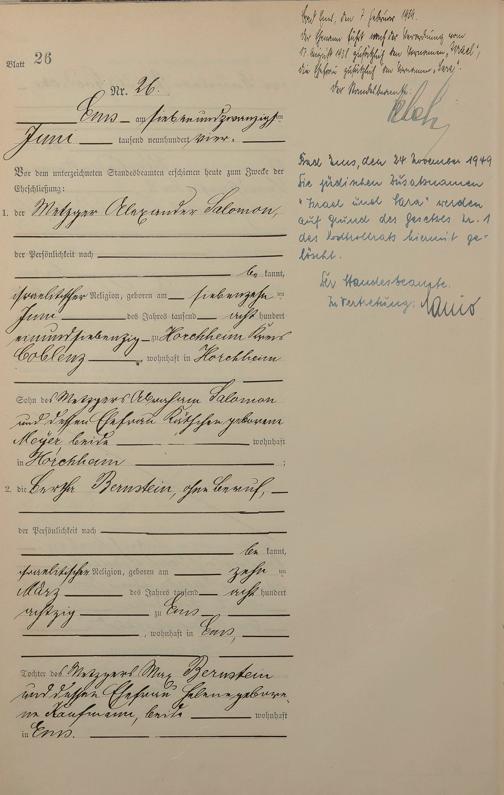 Blatt 26
Nr. 26.
Ems am siebenundzwanzigsten
Juni tausend neunhundert vier.
Vor dem unterzeichneten Standesbeamten erschienen heute zum Zwecke der
Eheschließung:
1. der Metzger Alexander Salomon,
der Persönlichkeit nach
be kannt,
israelitischer Religion, geboren am siebenzehn ten
Juni des Jahres tausend acht hundert
einundsiebenzig zu Horchheim Kreis
Coblenz, wohnhaft in Horchheim
Sohn des Metzgers Abraham Salomon
und dessen Ehefrau Käthchen geborene
Meyer beide wohnhaft
in Horchheim ;
2. die Bertha Bernstein, ohne Beruf,
der Persönlichkeit nach
be kannt,
israelitischer Religion, geboren am zehn ten
März des Jahres tausend acht hundert
achtzig zu Ems
, wohnhaft in Ems,
Tochter des Metzgers Max Bernstein
und dessen Ehefrau Helene gebore-
ne Kaufmann, beide wohnhaft
in Ems.
Bad Ems, den 7. Februar 1939.
Der Genannte führt nach der Verordnung vom
17. August 1938 zusätzlich den Vornamen „Israel",
die Ehefrau zusätzlich den Vornamen „Sara".
Der Standesbeamte.
Bad Ems, den 24 November 1949
Die jüdischen Zusatznamen
"Israel und Sara" werden
auf Grund des Gesetzes Nr. 1
des Kontrollrats hiermit ge-
löscht.
Der Standesbeamte.
In Vertretung: